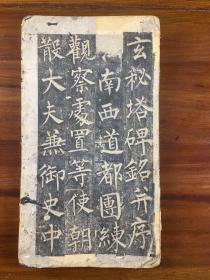 玄秘塔碑銘并序
南西道都團練
觀察處置等使朝
散大夫兼御史中